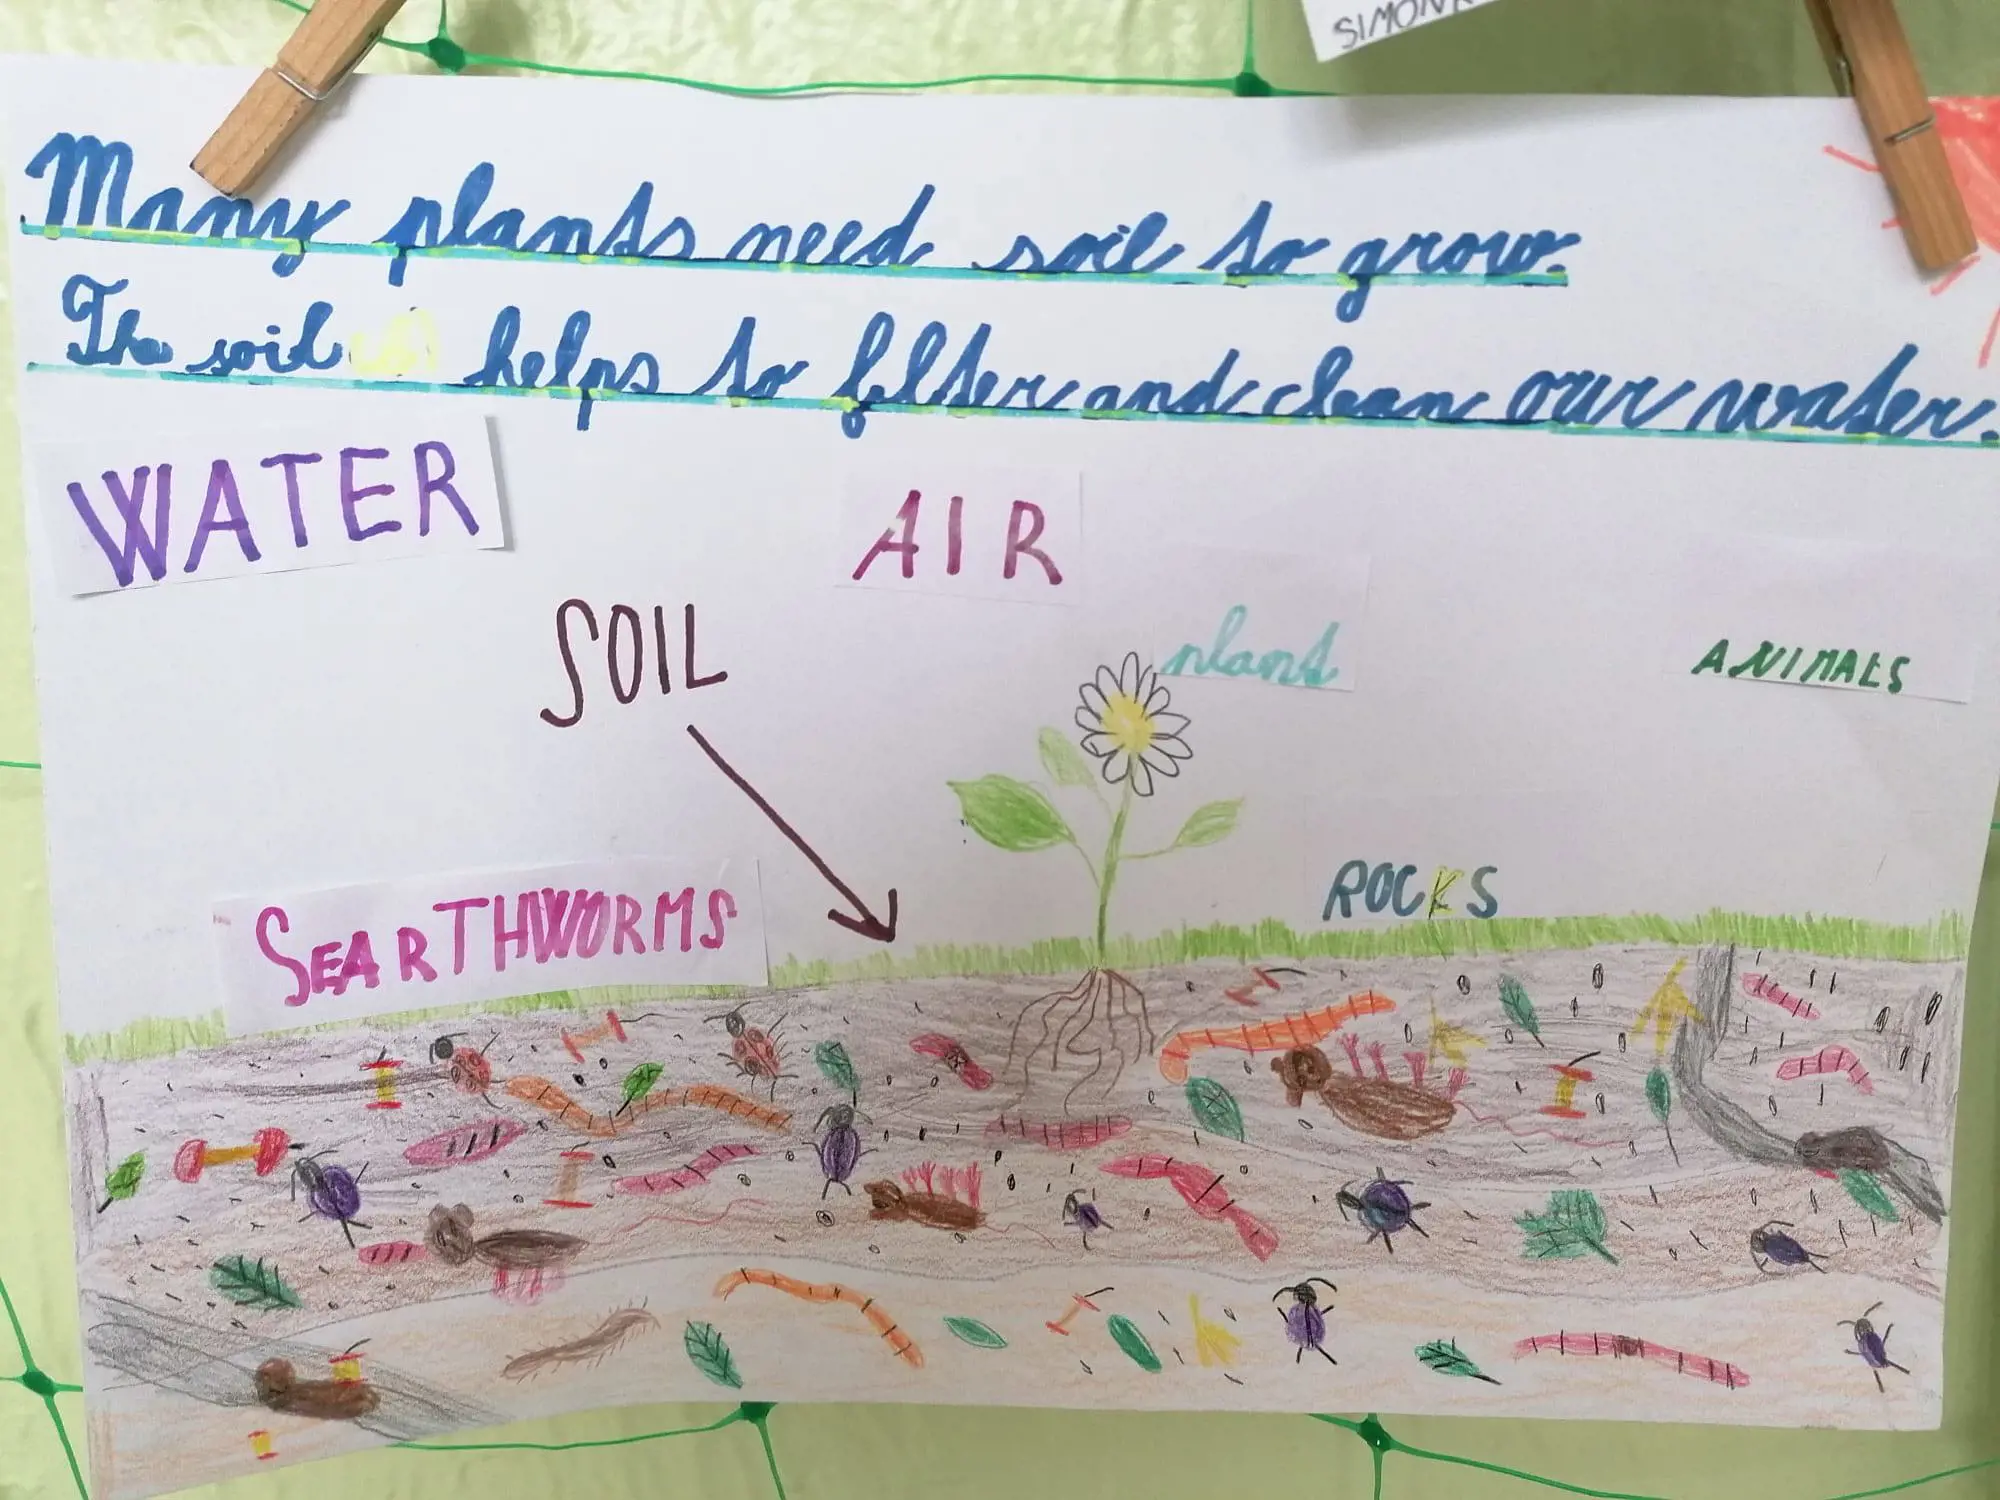 SIMON
Many plants need soil to grow.
The soil helps to filter and clean our water.
WATER
AIR
SOIL
plant
ANIMALS
ROCKS
SEARTHWORMS